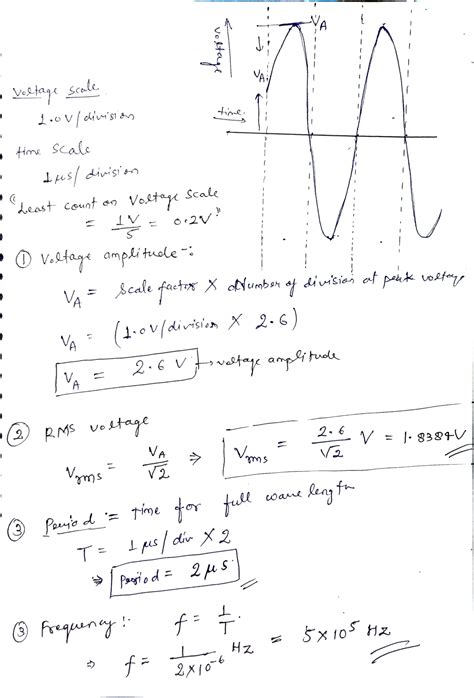 Voltage
VA
VA
time
Voltage Scale
1.0V/division
time Scale
1μs/division
"Least count on Voltage Scale
= 1V/5 = 0.2V"
① Voltage amplitude -:
VA = Scale factor × Number of division at peak voltage
VA = (1.0V/division × 2.6)
VA = 2.6 V → voltage amplitude
② RMS voltage
Vrms = VA/√2 ⇒ Vrms = 2.6/√2 V = 1.8384V
③ Period := time for full wave length
T = 1 μs/div × 2
⇒ Period = 2μs
③ Frequency :- f = 1/T.
⇒ f = 1/2×10⁻⁶ Hz = 5×10⁵ Hz